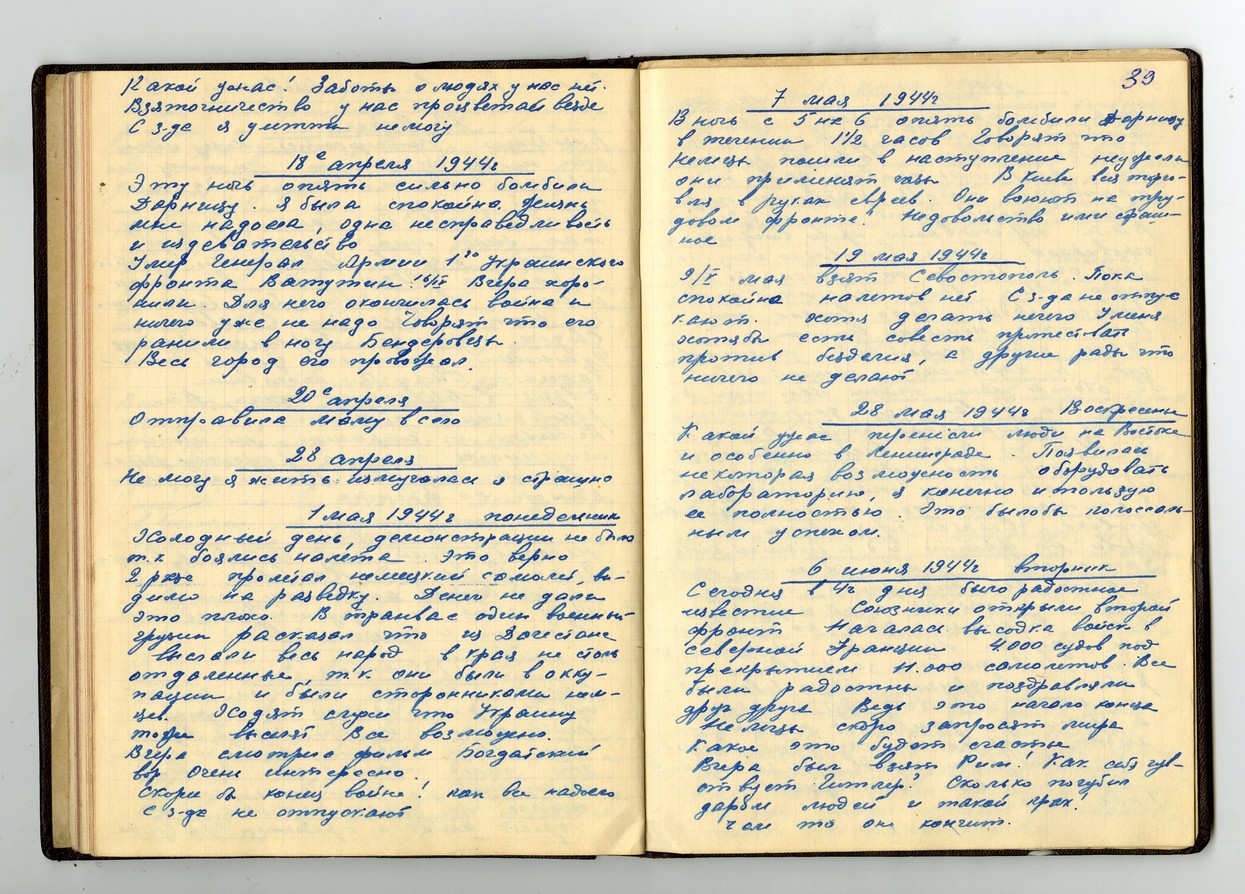 Какой ужас! Заботы о людях у нас нет.
Взяточничество у нас процветает везде
С з-да я уйти немогу
18е апреля 1944г
Эту ночь опять сильно бомбили
Дарницу. Я была спокойна. Жизнь
мне надоела, одна несправедливость
и издевательство
Умер Генерал Армии 1го Украинского
фронта Ватутин. 16/IV Вчера хоро-
нили. Для него окончилась война и
ничего уже не надо Говорят что его
ранили в ногу Бендеровцы.
Весь город его провожал.
20е апреля
Отправила маму в село
28 апреля
Не могу я жить. измучалась я страшно
1 мая 1944г понедельник
Холодный день, демонстрации не было
т.к боялись налета. Это верно
2 раза пролетал немецкий самолет, ви-
димо на разведку. Денег не дали
это плохо. В трамвае один военный
грузин расказал что из Дагестана
выслали весь народ в края не столь
отдаленные, т.к. они были в окку-
пации и были сторонниками нем-
це. Ходят слухи что Украину
тоже вышлют Все возможно.
Вчера смотрела фильм Багдатский
вор Очень интересно.
Скорей бы конец войне! как все надоело
С з-да не отпускают
39
7 мая 1944г
В ночь с 5 на 6 опять бомбили Дарницу
в течении 1 1/2 часов Говорят что
Немцы пошли в наступление неужели
они применят газы В Киеве вся торго-
вля в руках евреев. Они воюют на "тру-
довом фронте". Недовольство ими страш-
ное
19 мая 1944г
9/V мая взят Севостополь. Пока
спокойно налетов нет С з-да не отпус
кают. хотя делать нечего У меня
хотябы есть совесть протестовать
против безделия, а другие рады что
ничего не делают
28 мая 1944г Воскресение
Какой ужас перенесли люди на Востоке
и особенно в Ленинграде. Появилась
некоторая возможность оборудовать
лабораторию, я конечно использую
ее полностью. Это былобы колоссаль-
ным успехом.
6 июня 1944г вторник
Сегодня в 4ч дня было радостное
известие Союзники открыли второй
фронт Началась высодка войск в
северной Франции 4000 судов под
прекрытием 11.000 самолетов. Все
были радостны и поздравляли
друг друга Ведь это начало конца
Немцы скоро запросят мира
Какое это будет счастье
Вчера был взят Рим! Как себя чув-
ствует Гитлер? Сколько погубил
даром людей и такой крах!
Чем то он кончит.